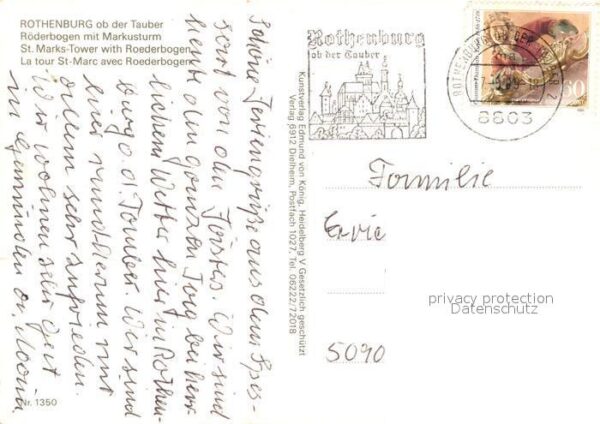 ROTHENBURG ob der Tauber
Röderbogen mit Markusturm
St. Marks-Tower with Roederbogen
La tour St-Marc avec Roederbogen
Schöne Feriengrüße aus dem Spes-
sart von den Försters. Wir sind
heute den ganzen Tag bei herr-
lichem Wetter hier in Rothen-
burg o. d. Tauber. Wir sind
hier rundherum mit
allem sehr zufrieden.
Wir wohnen sehr gut
in Gemünden a.
Nr. 1350
Kunstverlag Edmund von König, Heidelberg V Gesetzlich geschützt
Verlag 6912 Dielheim, Postfach 1027, Tel. 06222/72018
Rothenburg
ob der Tauber
ROTHENBURG OB DER TAUBER 2
8803
60
Familie
5090
privacy protection
Datenschutz